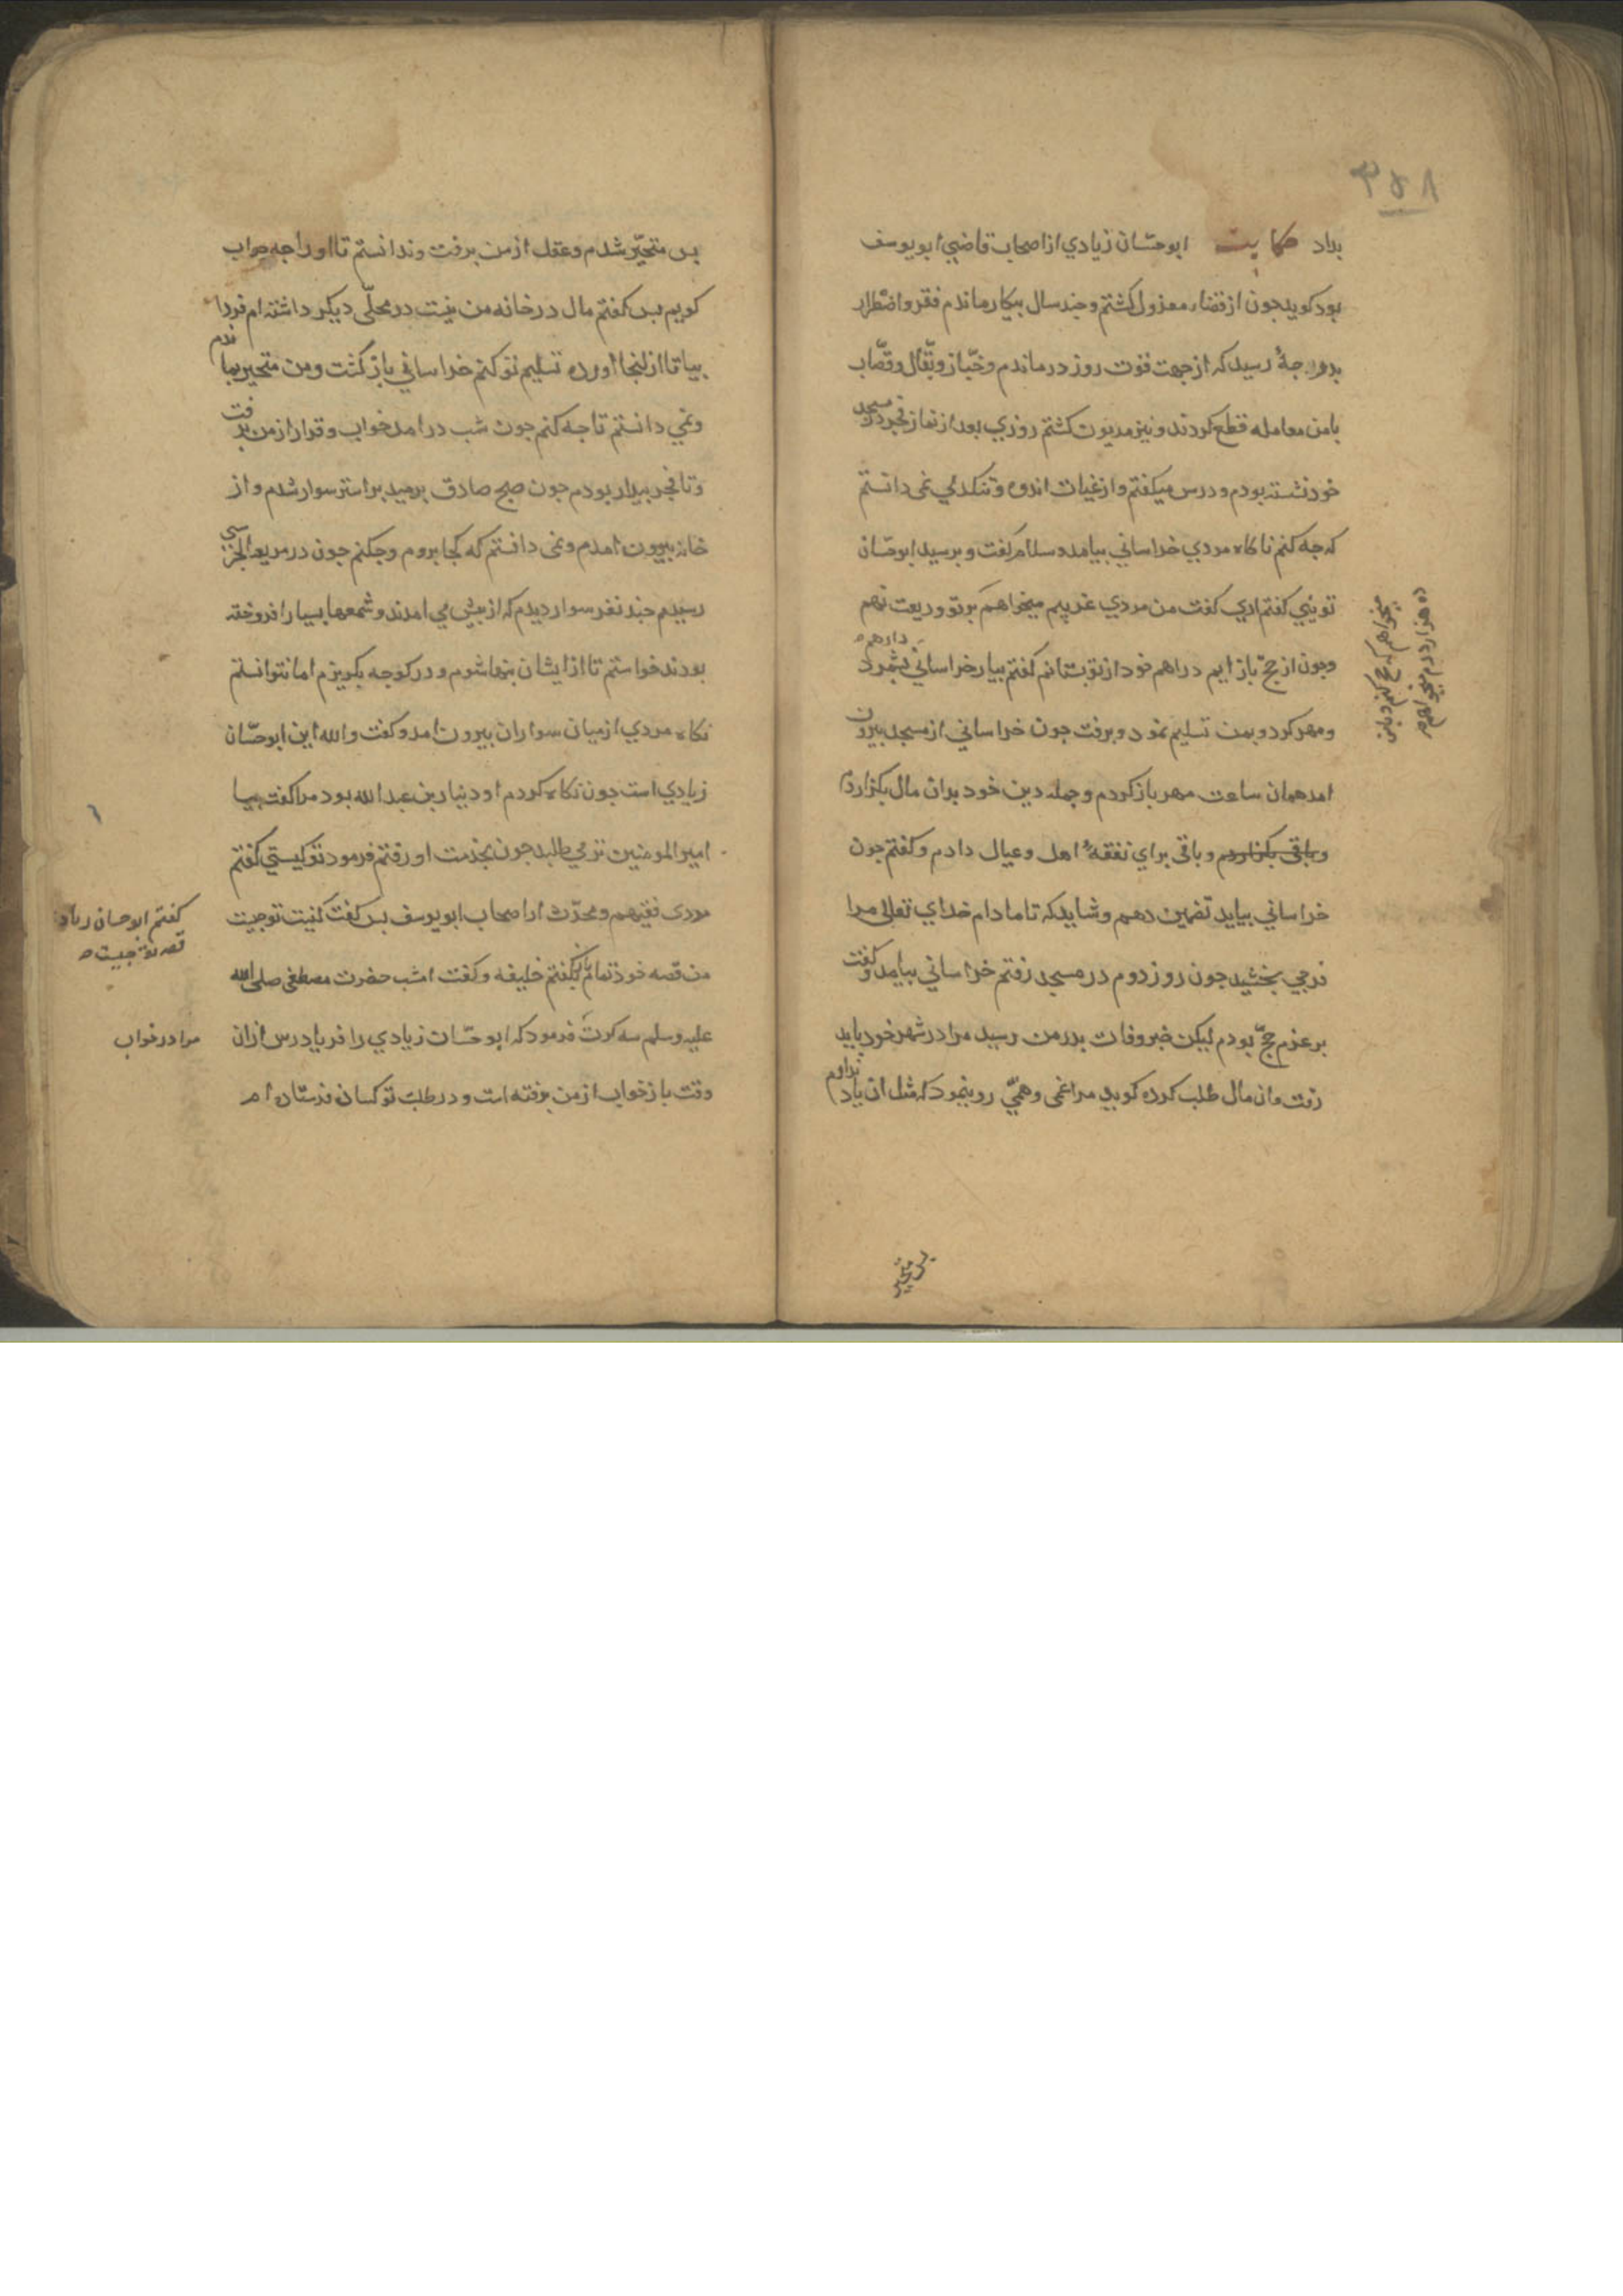 ۳۵۸
بداد حکایت ابوحسّان زیادي از اصحاب قاضي ابو یوسف
بود کوید جون از قضاء معزول کشتم وجند سال بیکار ماندم فقر واضطرار
بدرجهٔ رسید که از جهت قوت روز درماندم وخبّاز وبقّال وقصّاب
بامن معامله قطع کردند ونیز مدیون کشتم روزي بعد از نماز فجر در مسجد
خود نشسته بودم ودرس میکفتم واز غیات اندوه وتنکدلي نمی دانستم
که جه کنم ناکاه مردي خراساني بیامد وسلام کفت وبرسید ابوحسّان
تویي کفتم اري کفت من مردي غریبم میخواهم بر تو ودیعت نهم
ده هزار درم میخواهم
میخواهم که حج کنم وباین
وجون از حجّ باز ایم دراهم خود از تو بستانم کفتم بیار خراساني دراهم بشمرد
ومهر کرد وبمن تسلیم نمود وبرفت جون خراساني از مسجد بیرون
امد همان ساعت مهر باز کردم وجمله دین خود بدان مال بکزاردم
وباقی بکزاردم وباقی براي نفقهٔ اهل وعیال دادم وکفتم جون
خراساني بیاید تضمین دهم وشاید که تا مادام خداي تعالی مرا
فرجي بخشید جون روز دوم در مسجد رفتم خراساني بیامد وکفت
بر عزم حجّ بودم لیکن خبر وفات بدر من رسید مرا در شهر خود باید
رفت وان مال طلب کرده کوید مرا غمی وهمّي رو بنمود که مثل ان یاد ندارم
بس متحیر
بس متحیّر شدم وعقل از من برفت وندانستم تا اورا جه جواب
کویم بس کفتم مال در خانه من نیست در محلّی دیکر داشته ام فردا
بیا تا از انجا اورده تسلیم تو کنم خراساني باز کشت ومن متحیر بماندم
ونمي دانستم تا جه کنم جون شب در امد خواب وقرار از من برفت
وتا فجر بیدار بودم جون صبح صادق برمید بر استر سوار شدم واز
خانه بیرون امدم ونمی دانستم که کجا بروم وجکنم جون در مربعة الخرسی
رسیدم جند نفر سوار دیدم که از بیش مي امدند وشمعها بسیار افروخته
بودند خواستم تا از ایشان تنها شوم ودر کوجه بکریزم اما نتوانستم
نکاه مردي از میان سواران بیرون امد وکفت والله این ابوحسّان
زیادي است جون نکاه کردم او دینار بن عبدالله بود مرا کفت بیا
امیر المومنین ترا مي طلبد جون بخدمت او رفتم فرمود تو کیستي کفتم
مردی فقیهم ومحدّث از اصحاب ابو یوسف بس کفت کنیت تو جیست
کفتم ابو حسان زیاد
قصه تو جیست
من قصه خود تمام بکفتم خلیفه وکفت امشب حضرت مصطفی صلی الله
علیه وسلم سه کرت فرمود که ابوحسّان زیادي را فریاد رس ازان
مرا در خواب
وقت باز خواب از من برفته است ودر طلب تو کسان فرستاده ام